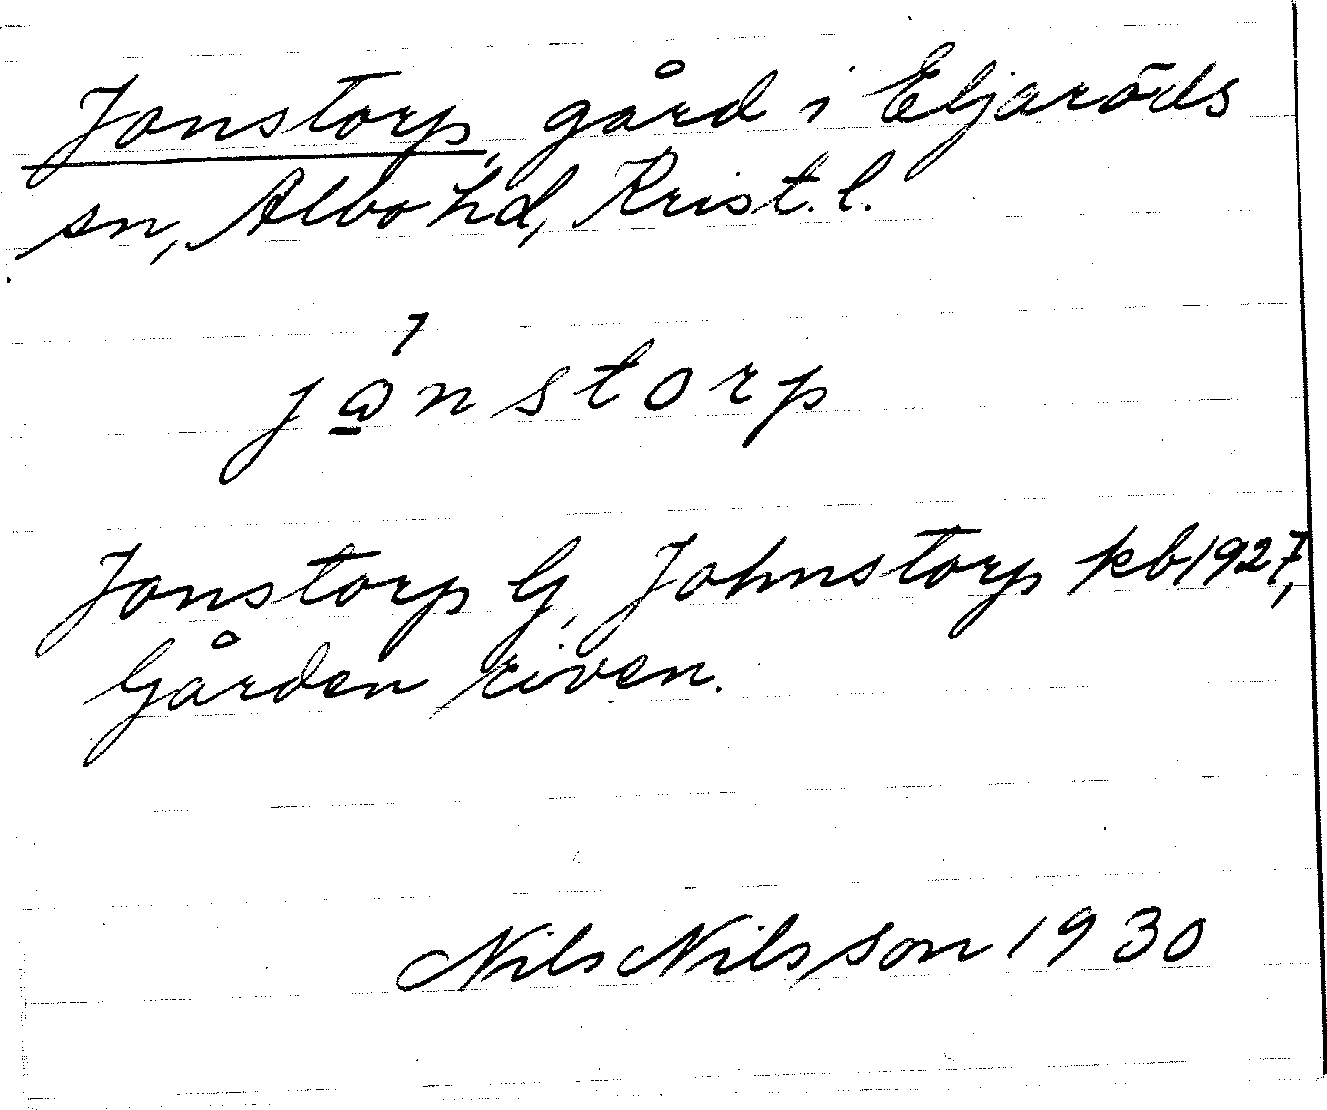 Jonstorp, gård i Eljaröds
sn, Albo hd, Krist. l.
jånstorp
Jonstorp G, Johnstorp kb 1927,
Gården riven.
Nils Nilsson 1930